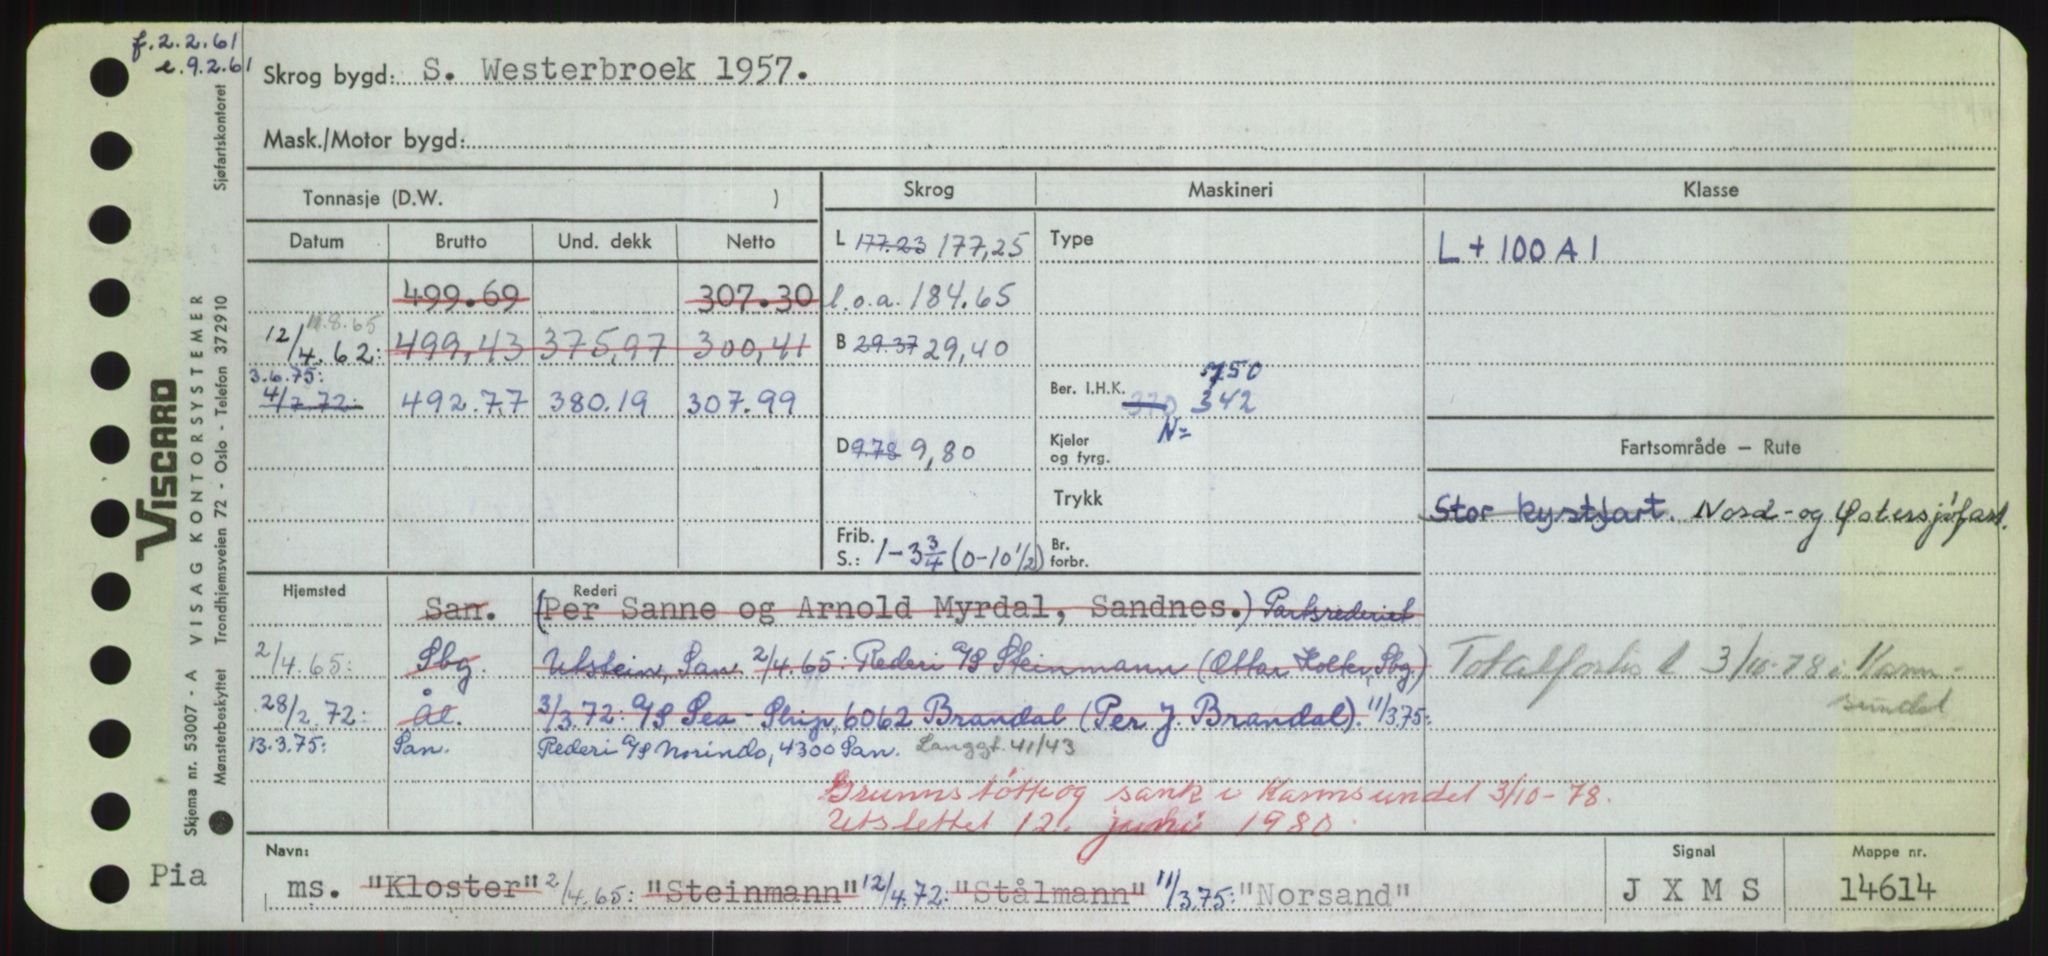 f. 2.2.61
e. 9.2.61
Skrog bygd: S. Westerbroek 1957.
Mask./Motor bygd:
Tonnasje (D.W. )
Skrog
Maskineri
Klasse
Datum
Brutto
Und. dekk
Netto
L 177.23 177,25
Type
L + 100 A 1
499.69
307.30
l.o.a. 184.65
11.8.65
12/4.62: 499,43 375,97 300,41
B 29.37 29,40
3.6.75:
4/7 72: 492.77 380.19 307.99
750
Ber. I.H.K. 370 342
N=
Kjeler og fyrg.
Fartsområde — Rute
D 9.78 9,80
Trykk
Stor kystfart. Nord- og Østersjøfart.
Frib.
S.: 1-3 3/4 (0-10 1/2)
Br. forbr.
Hjemsted
Rederi
San. (Per Sanne og Arnold Myrdal, Sandnes.) Partsrederiet
2/4.65: Sbg. Utstein, San. 2/4.65: Rederi A/S Steinmann (Ottar Holter, Sbg.)
Totalforlis 3/10-78 i Karm-
sundet
28/2.72: Ål. 3/3.72: A/S Sea-Ship, 6062 Brandal (Per J. Brandal). 11/3.75:
13.3.75: San. Rederi A/S Norindo, 4300 San. Langgt. 41/43
Grunnstøtte og sank i Karmsundet 3/10-78.
Utslettet 12. juni 1980.
Navn:
Signal
Mappe nr.
Pia
ms. "Kloster" 2/4.65: "Steinmann" 12/4.72: "Stålmann" 11/3.75: "Norsand"
J X M S
14614
VISCARD
VISAG KONTORSYSTEMER
Skjema nr. 53007 - A
Sjøfartskontoret
Mønsterbeskyttet Trondhjemsveien 72 - Oslo - Telefon 372910